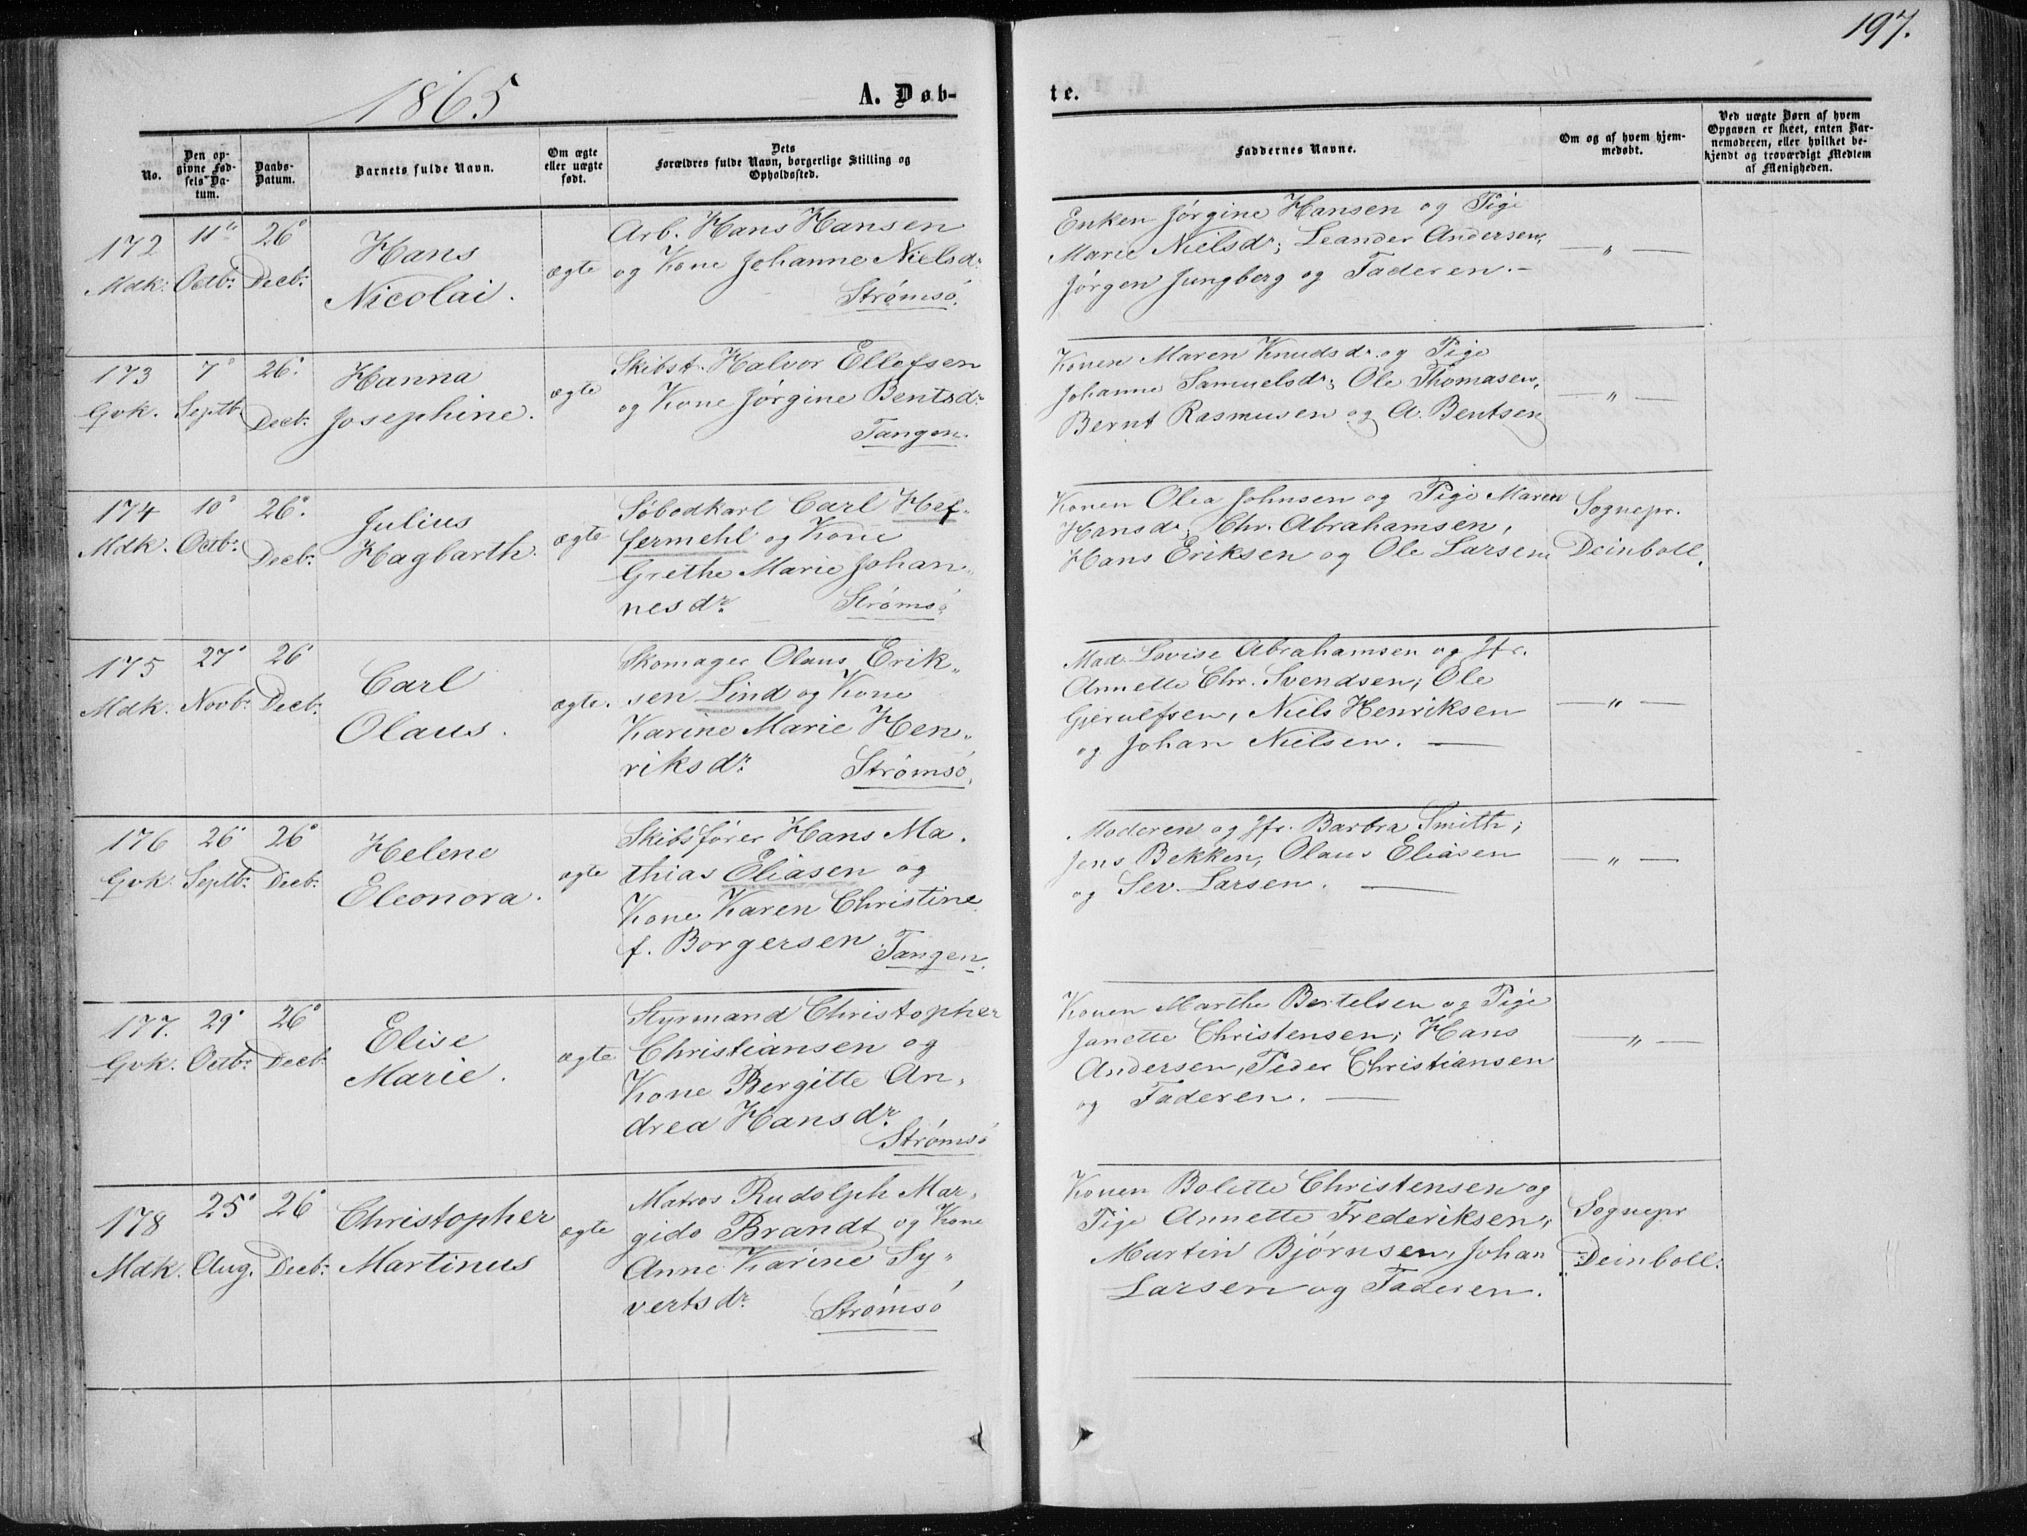 197.
1865
A. Døb-
te.
No.
Den op-
givne Fød-
sels Da-
tum.
Daabs-
Datum.
Barnets fulde Navn.
Om ægte
eller uægte
født.
Dets
Forældres fulde Navn, borgerlige Stilling og
Opholdssted.
Faddernes Navne.
Om og af hvem hjem-
medøbt.
Ved uægte Børn af hvem
Opgaven er skeet, enten Bar-
nemoderen, eller hvilket be-
kjendt og troværdigt Medlem
af Menigheden.
172
Mdk.
11
Octbr.
26
Decbr.
Hans
Nicolai.
ægte
Arb. Hans Hansen
og Kone Johanne Nielsdr.
Strømsø.
Enken Jørgine Hansen og Pige
Marie Nielsdr; Leander Andersen,
Jørgen Jungberg og Faderen. -
— " —
173
Gvk.
7
Septbr.
26.
Decbr.
Hanna
Josephine.
ægte
Skibst. Halvor Ellefsen
og Kone Jørgine Bentsdr.
Tangen.
Konen Maren Knudsdr. og Pige
Johanne Samuelsdr; Ole Thomasen,
Bernt Rasmusen og A. Bentsen
— " —
174
Mdk.
10
Octbr.
26.
Decbr.
Julius
Hagbarth.
ægte
Søbodkarl Carl Hef-
fermehl og Kone
Grethe Marie Johan-
nesdr. Strømsø
Konen Olea Johnsen og Pige Maren
Hansdr; Chr. Abrahamsen,
Hans Eriksen og Ole Larsen.
Sognepr.
Deinboll.
175
Mdk.
27
Novbr.
26
Decbr.
Carl
Olaus.
ægte.
Skomager Olaus Erik-
sen Lind og Kone
Karine Marie Hen-
riksdr. Strømsø.
Mad. Lovise Abrahamsen og Jfr.
Annette Chr. Svendsen; Ole
Gjerulfsen, Niels Henriksen
og Johan Nielsen. —
— " —
176
Gvk.
26
Septbr.
26
Decbr.
Helene
Eleonora.
ægte
Skibsfører Hans Ma-
thias Eliasen og
Kone Karen Christine
f. Borgersen. Tangen.
Moderen og Jfr. Barbra Smith;
Jens Bekken, Olaus Eliasen
og Sev. Larsen. —
— " —
177.
Gvk.
29
Octbr.
26
Decbr.
Elise
Marie.
ægte
Styrmand Christopher
Christiansen og
Kone Bergitte An-
drea Hansdr.
Strømsø
Konen Marthe Bertelsen og Pige
Janette Christensen; Hans
Andersen, Peder Christiansen
og Faderen. —
— " —
178
Mdk.
25
Aug.
26
Decbr.
Christopher
Martinus
ægte
Matros Rudolph Mar-
gido Brandt og Kone
Anne Karine Sy-
vertsdr. Strømsø
Konen Bolette Christensen og
Pige Annette Frederiksen,
Martin Bjørnsen, Johan
Larsen og Faderen.
Sognepr
Deinboll.